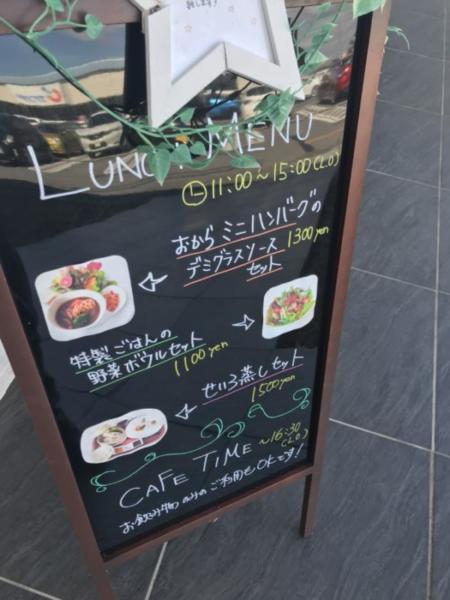 致します!
LUNCH MENU
11:00〜15:00(L.O)
おから ミニハンバーグの
デミグラスソース 1300yen
セット
特製ごはんの
野菜ボウルセット
1100yen
せいろ蒸しセット
1500yen
CAFE TIME 〜16:30
(L.O)
お飲み物のみのご利用もOKです!